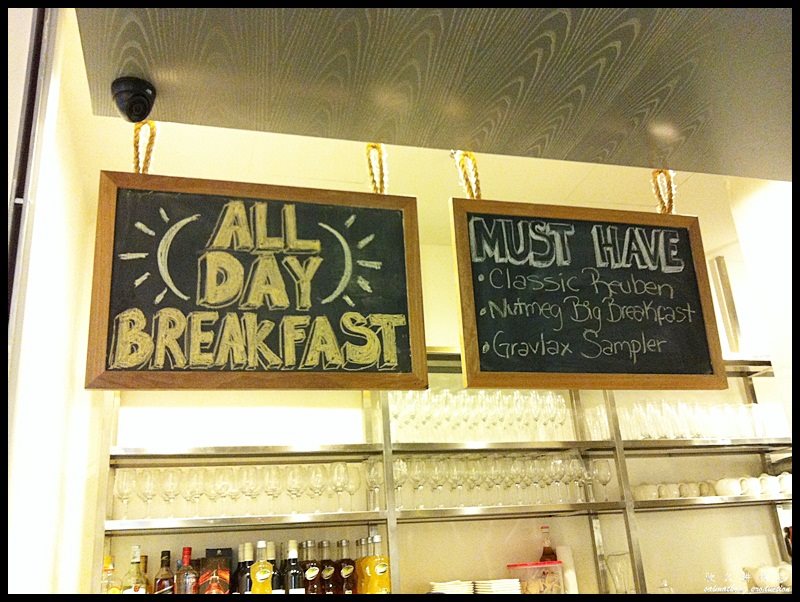 ALL
DAY
BREAKFAST
MUST HAVE
• Classic Reuben
• Nutmeg Big Breakfast
• Gravlax Sampler